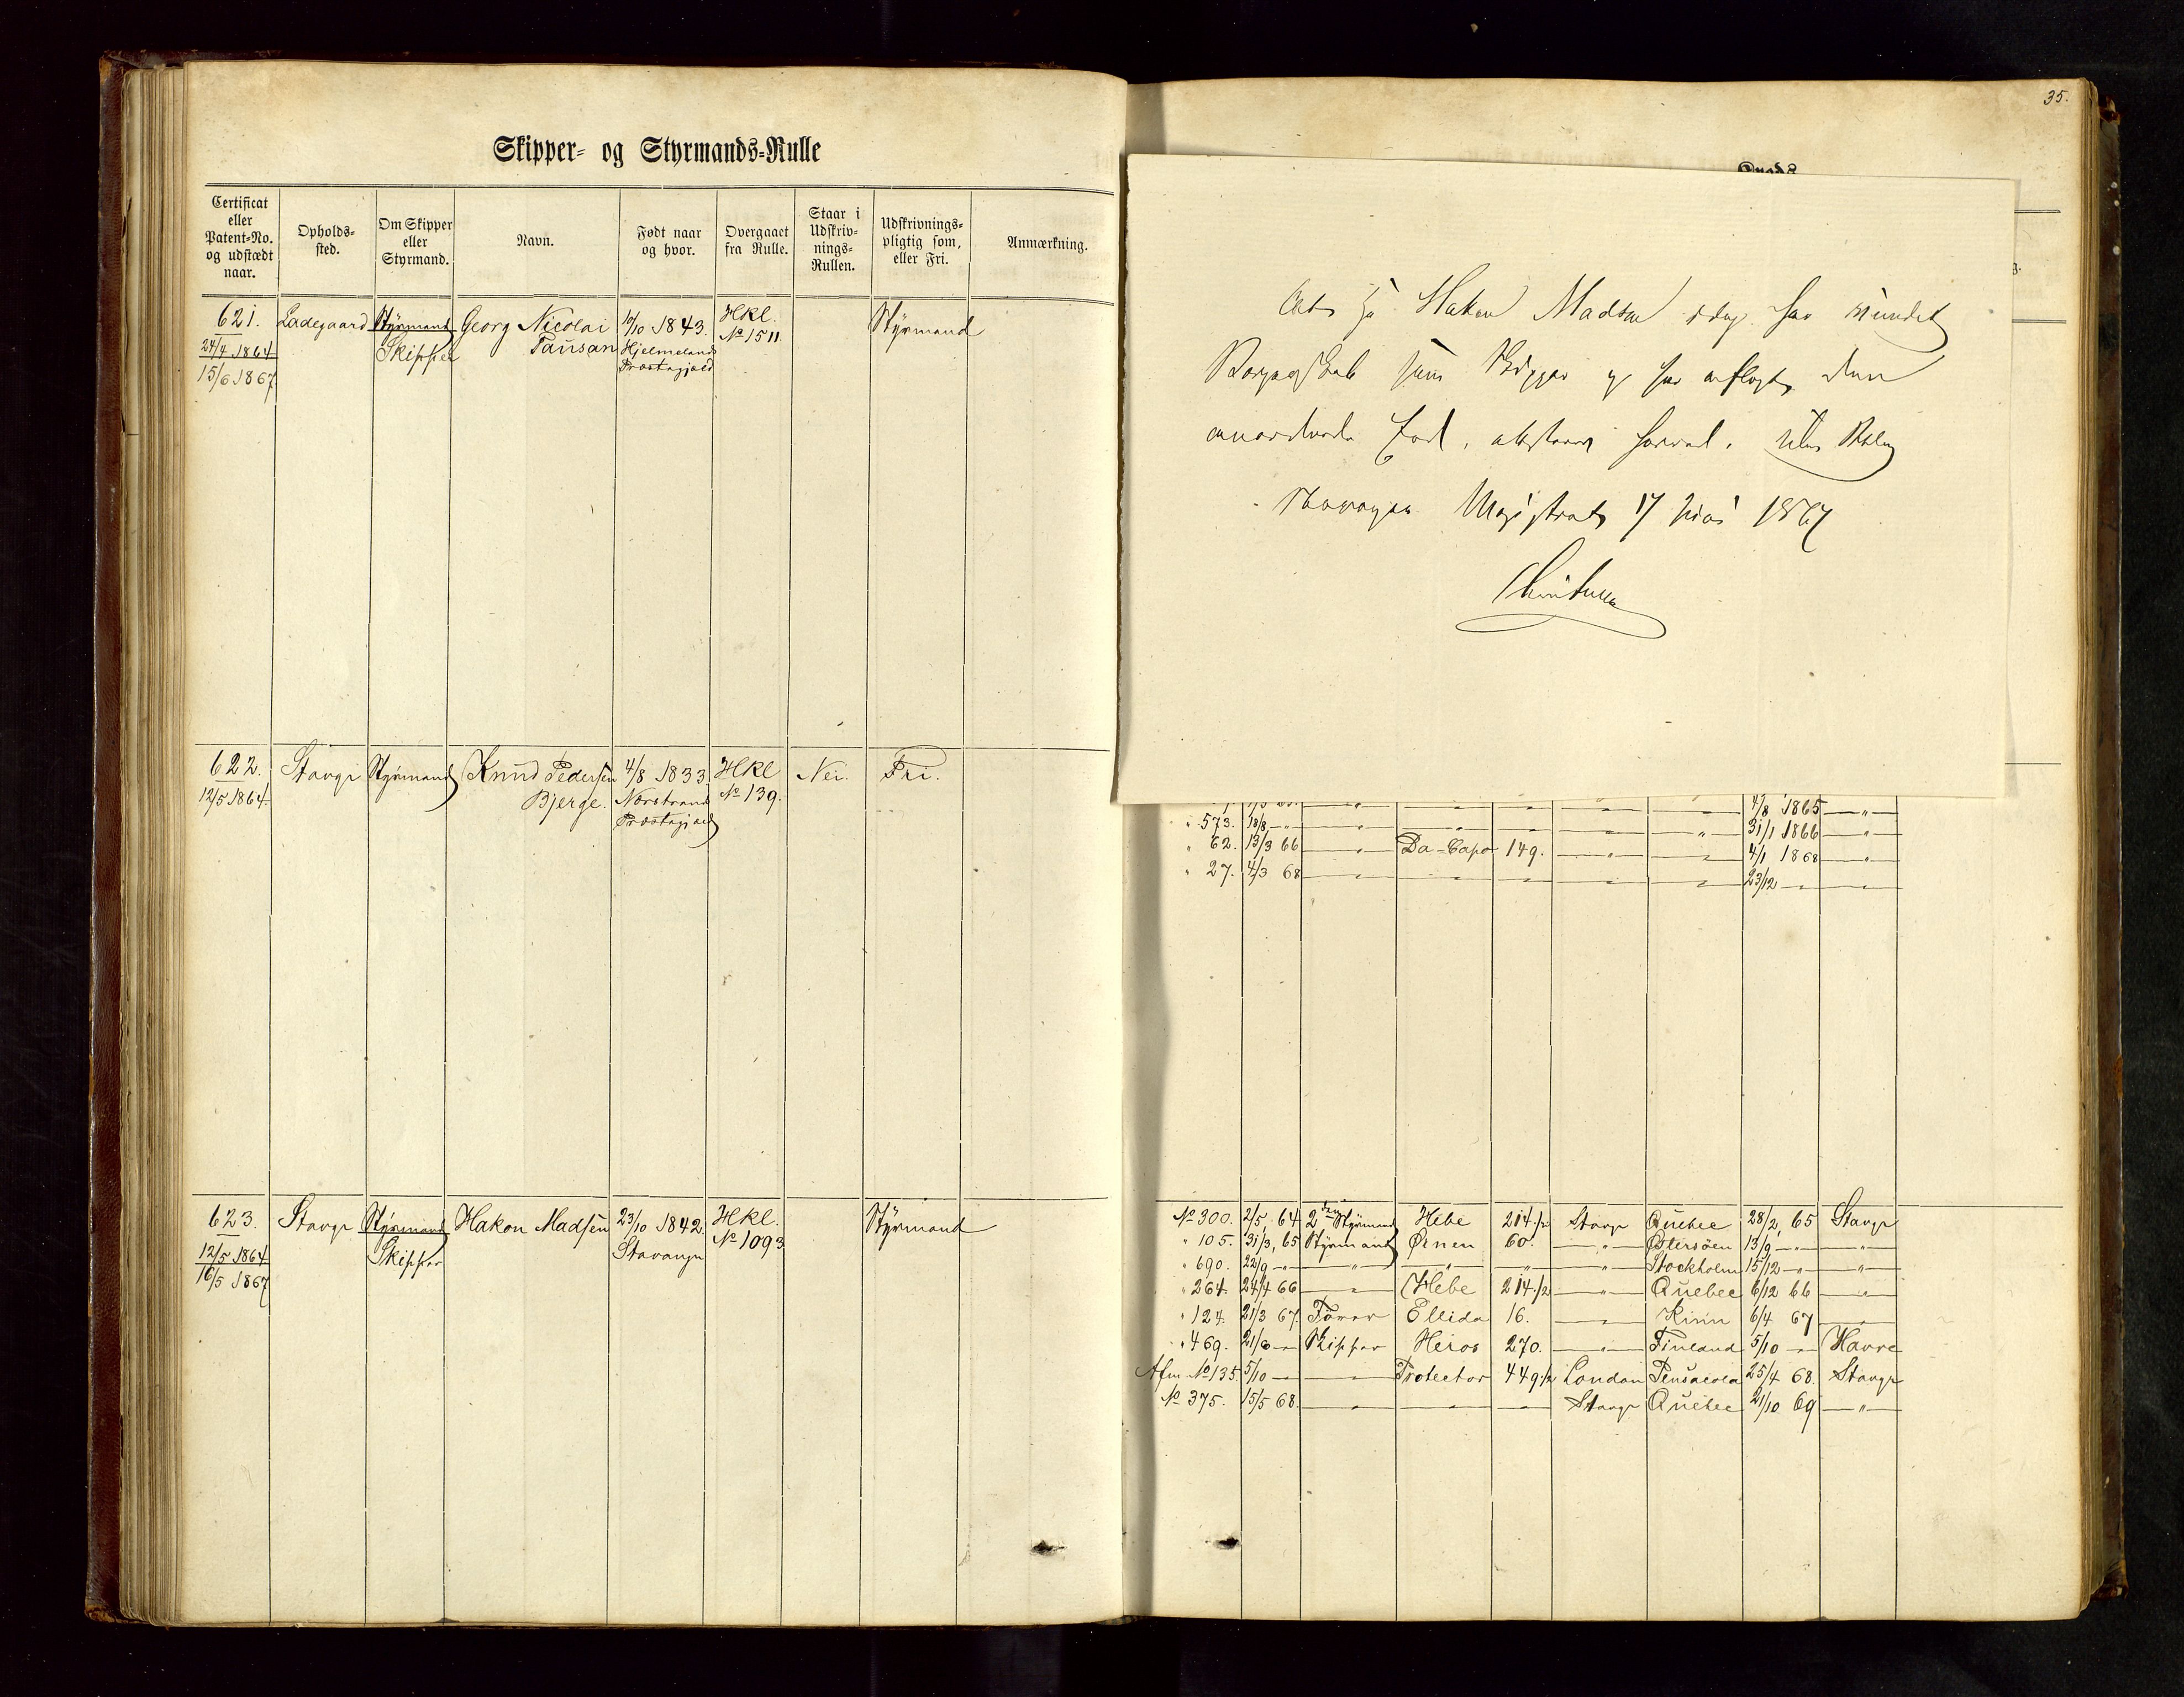 35.
Skipper- og Styrmands-Rulle
Certificat eller Patent-No. og udstædt naar.
Opholds-sted.
Om Skipper eller Styrmand.
Navn.
Født naar og hvor.
Overgaaet fra Rulle.
Staar i Udskriv-nings-Rullen.
Udskrivnings-pligtig som, eller Fri.
Anmærkning.
621. Ladegaard Styrmand Georg Nicolai 10/10 1843. Hkl. Styrmand
24/4 1864 Skipper Tausan Hjelmelands No 1511
15/6 1867 Præstegjæld
622. Stavgr Styrmand Knud Pedersen 4/8 1833. Hkl Nei. Fri.
12/5 1864. Bjerge. Nærstrand No 139.
Præstegjæld
623. Stavgr Styrmand Hakon Madsen 23/10 1842. Hkl. Styrmand
12/5 1864 Skipper Stavanger No 1093
16/5 1867
At Hakon Madsen idag har vundet
Borgerskab som Skipper og har aflagt den
anordnede Eed, attesteres herved.
Stavanger Magistrat 17 1867
4/8 1865 — " —
" 573. 18/8 — " — — " — — " — — " — — " — 31/1 1866 — " —
" 62. 13/3 66 — " — Da-Capo 149. — " — — " — 4/1 1868 — " —
" 27. 4/3 68 — " — — " — — " — — " — — " — 23/12 — " — — " —
No 300. 2/5 64 2den Styrmand Hebe 214 1/2 Stavgr Quebec 28/2 65 Stavgr
" 105. 31/3 65 Styrmand Ørnen 60. — " — Østersøen 13/9 — " — — " —
" 690. 22/9 — " — — " — — " — — " — — " — Stockholm 15/12 — " — — " —
" 264. 24/4 66 — " — Hebe 214 1/2 — " — Quebec 6/12 66 — " —
" 124. 21/3 67. Fører Ellida 16. — " — Kinn 6/4 67 — " —
" 469. 21/6 — " — Skipper Heros 270. — " — Finland 5/10 — " — Havre
Afm No 135. 5/10 — " — — " — Protector 449 1/2 London Pensacola 25/4 68. Stavgr
No 375. 15/5 68. — " — — " — — " — Stavgr Quebec 21/10 69 — " —